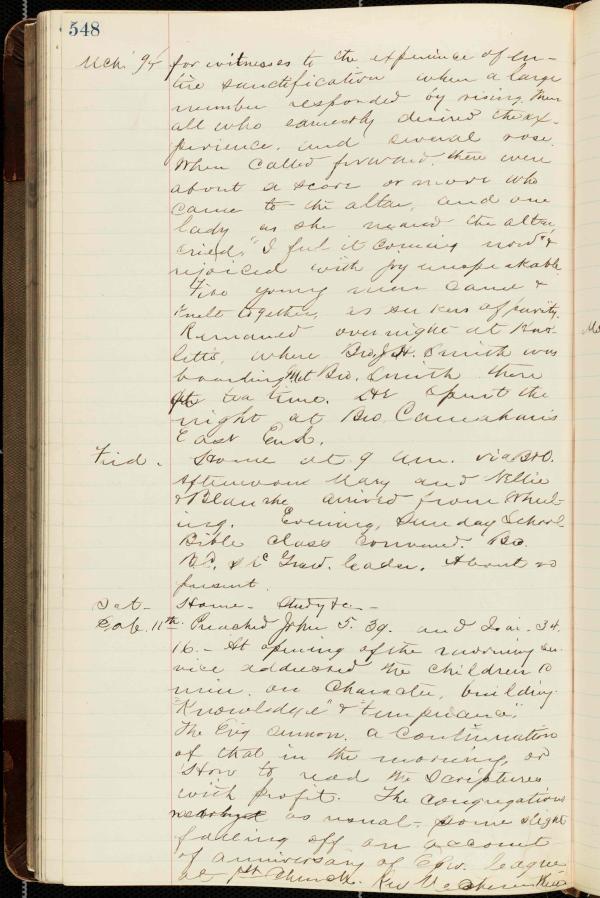 548
Mch. 9th for witnesses to the experience of en-
tire sanctification when a large
number responded by rising. Then
all who earnestly desired the ex-
perience, and several rose.
When called forward, there were
about a score or more who
came to the altar, and one
lady as she neared the altar
cried, "I feel it coming now" &
rejoiced with joy unspeakable
Five young men came &
knelt together, as seekers of purity.
Remained over night at
where Bro. J. H. Smith was
boarding Met Bro. Smith there
at tea time. spent the
night at Bro. Carnahan's
East End.
Frid. Home at 9 a.m. via B&O.
Afternoon Mary and Nellie
& Blanche arrived from Wheel-
ing. Evening, Sunday School
Bible Class convened. Bro.
leader. About 20
present.
Sat- Home- Study &c-
Sab. 11th. Preached John 5.39. and Isai. 34.
16.- At opening of the morning ser-
vice addressed the children 10
min. on Character, building.
"Knowledge" & "temperance."
The Ev'g sermon, a continuation
of that in the morning, on
"How to read the Scriptures
with profit. The congregations
nearly as usual- some slight
falling off on account
of anniversary of Epw. League
at 1st Church. Rev